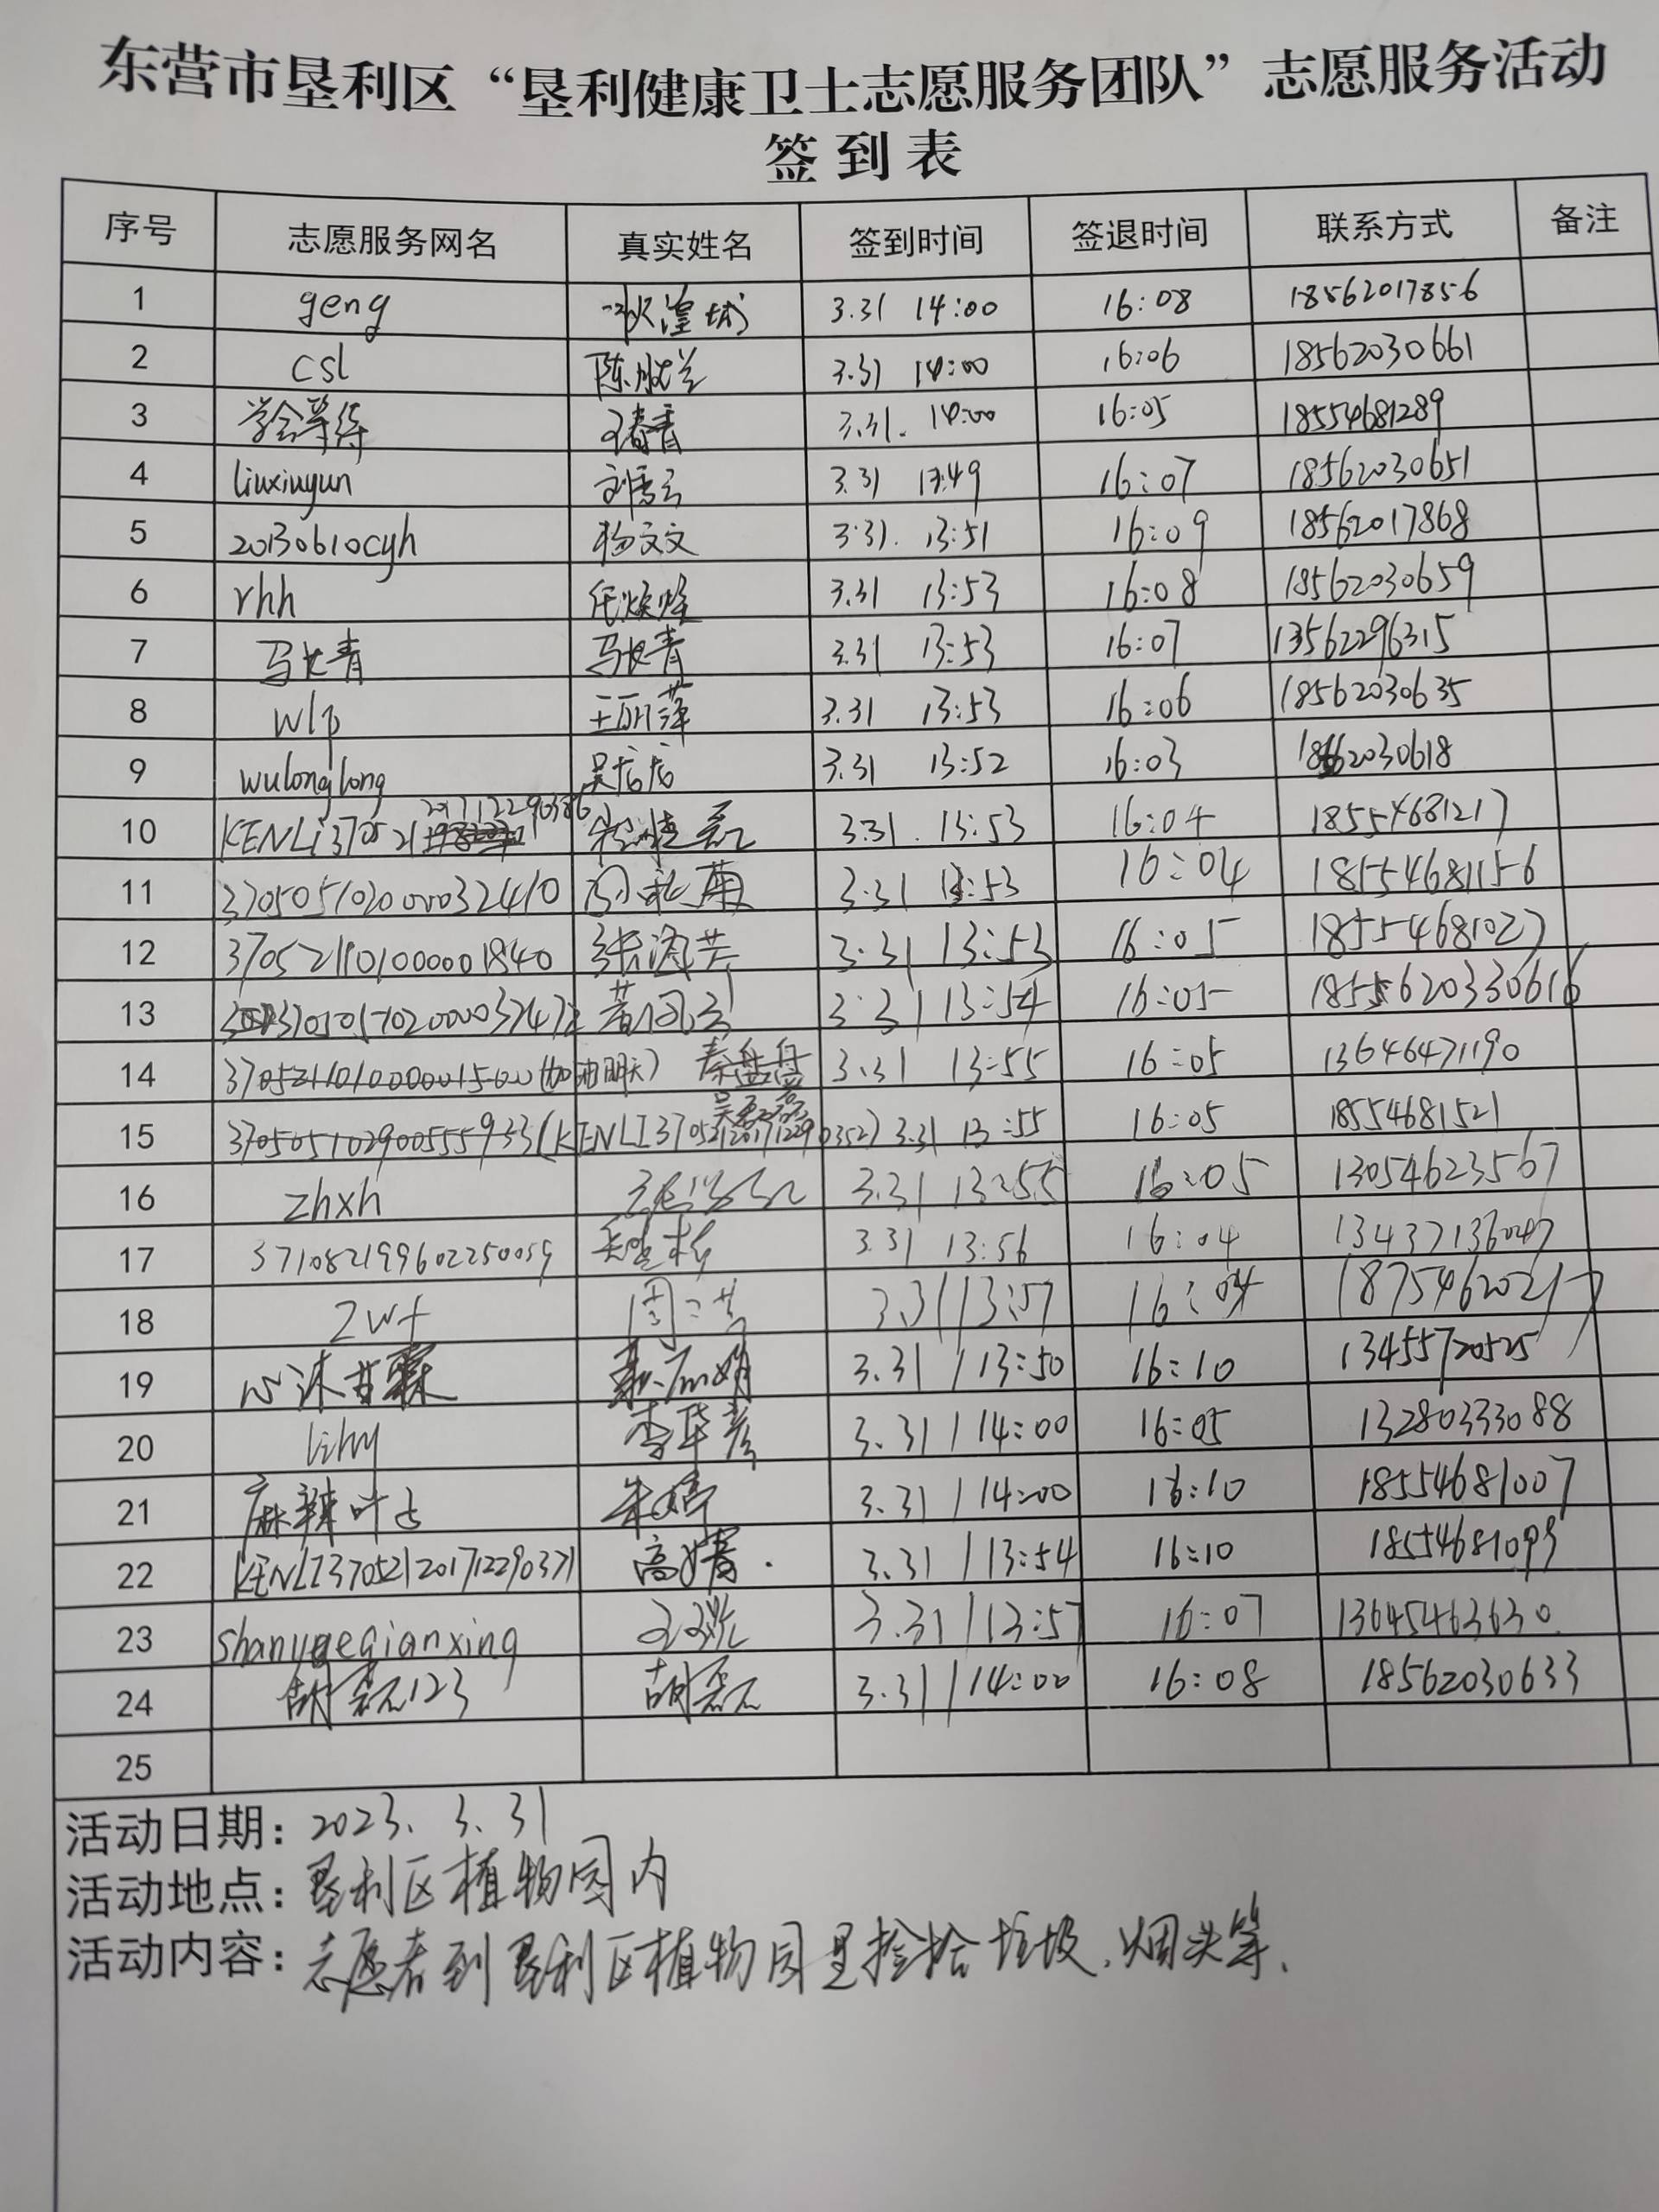 东营市垦利区“垦利健康卫士志愿服务团队”志愿服务活动
签到表
序号 志愿服务网名 真实姓名 签到时间 签退时间 联系方式 备注
1 geng 3.31 14:00 16:08 18562017856
2 csl 3.31 14:00 16:06 18562030661
3 学会等待 王春香 3.31. 14:00 16:05 18554681289
4 liuxiuyun 刘秀云 3.31 13:49 16:07 18562030651
5 20130610cyh 杨文文 3.31. 13:51 16:09 18562017868
6 rhh 任焕焕 3.31 13:53 16:08 18562030659
7 马长青 马长青 3.31 13:53 16:07 13562296315
8 wlp 王丽萍 3.31 13:53 16:06 18562030635
9 wulonglong 3.31 13:52 16:03 18562030618
10 KENLI370521201712290386 3.31. 13:53 16:04 18554681217
11 3705051020000032410 3.31 13:53 16:04 18554681156
12 3705211010000001840 3.31 13:53 16:05 18554681027
13 3.31 13:54 16:05
14 3705211010000001500(加油明天) 秦盘盘 3.31 13:55 16:05 13646471190
15 370505102900555933(KENLI370521201712290352) 吴磊磊 3.31 13:55 16:05 18554681521
16 zhxh 3.31 13:55 16:05 13054623567
17 371082199602250059 3.31 13:56 16:04 13437136047
18 zwf 3.31 13:57 16:04 18754620217
19 心沐甘霖 3.31/13:50 16:10 13455720525
20 lihy 李华彦 3.31/14:00 16:05 13280333088
21 麻辣叶占 朱婷 3.31/14:00 16:10 18554681007
22 KENLI370521201712290371 高婧. 3.31/13:54 16:10 18554681093
23 shanyueqianxing 3.31/13:57 16:07 13645463630.
24 胡磊123 胡磊 3.31/14:00 16:08 18562030633
25
活动日期：2023.3.31
活动地点：垦利区植物园内
活动内容：志愿者到垦利区植物园里捡拾垃圾、烟头等.